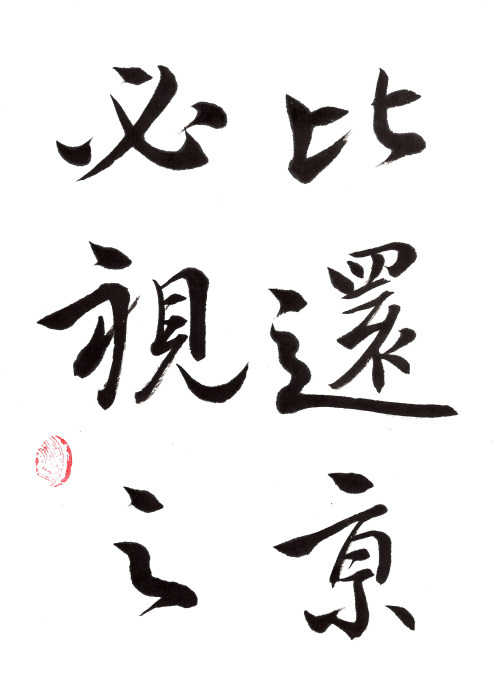 比還京
必視之